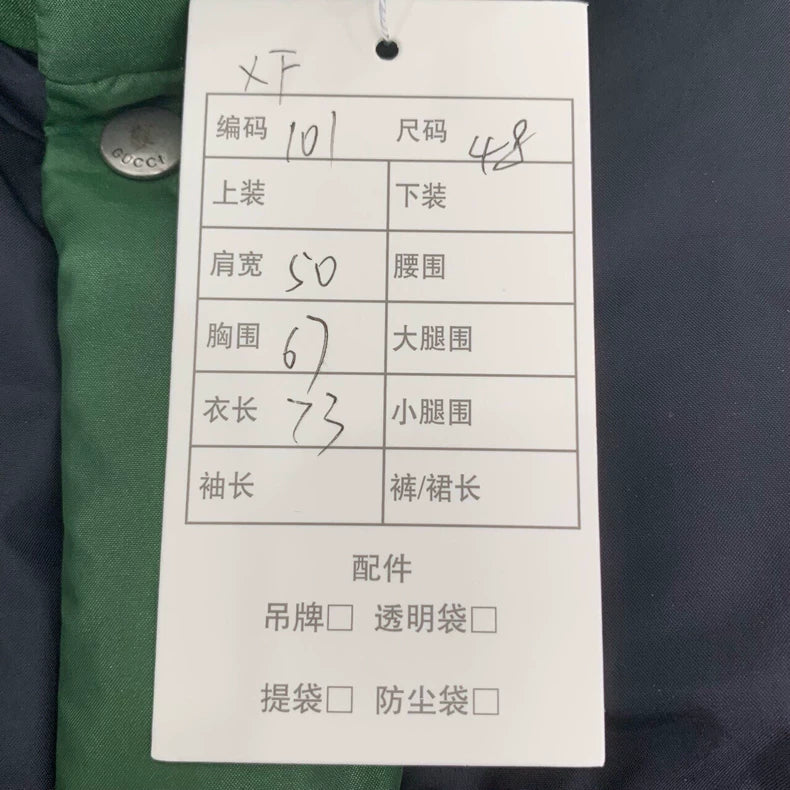 XF
编码 101 尺码 48
上装 下装
GUCCI
肩宽 50 腰围
胸围 67 大腿围
衣长 73 小腿围
袖长 裤/裙长
配件
吊牌□ 透明袋□
提袋□ 防尘袋□